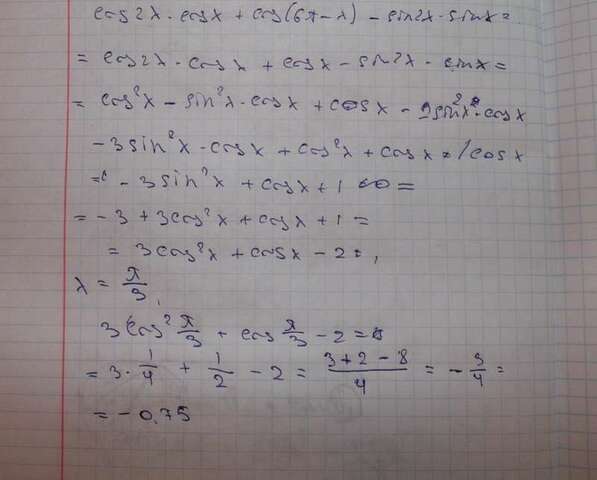 cos2x · cosx + cos(6π - x) - sin2x · sinx =
= cos2x · cosx + cosx - sin2x · sinx =
= cos²x - sin²x · cosx + cosx - 2sin²x · cosx
-3sin²x · cosx + cos²x + cosx = /cosx
= -3sin²x + cosx + 1 =
= -3 + 3cos²x + cosx + 1 =
= 3cos²x + cosx - 2 = ,
x = π/3,
3cos² π/3 + cos π/3 - 2 =
= 3 · 1/4 + 1/2 - 2 = (3 + 2 - 8)/4 = - 3/4 =
= -0,75